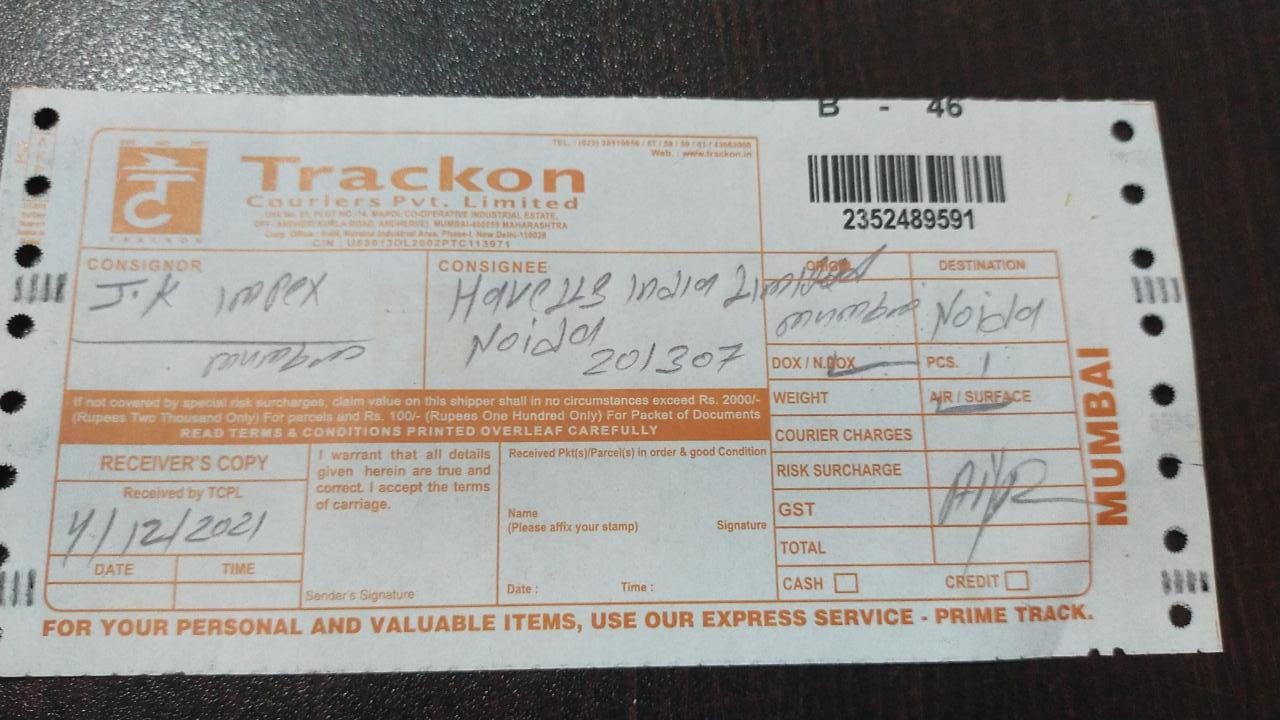 B - 46
2352489591
TEL. : (022) 28510056 / 57 / 58 / 59 / 61 / 43663006
Web. : www.trackon.in
Trackon
Couriers Pvt. Limited
TRACKON
Corp. Office : Naraina Industrial Area, Phase-I, New Delhi-110028
CIN : U63013DL2002PTC113971
CONSIGNOR
J.K Impex
CONSIGNEE
Havells India Limited
Noida
201307
ORIGIN
DESTINATION
Noida
DOX / N.DOX
PCS. 1
WEIGHT
AIR / SURFACE
COURIER CHARGES
RISK SURCHARGE
GST
TOTAL
CASH
CREDIT
MUMBAI
If not covered by special risk surcharges, claim value on this shipper shall in no circumstances exceed Rs. 2000/-
(Rupees Two Thousand Only) For parcels and Rs. 100/- (Rupees One Hundred Only) For Packet of Documents
READ TERMS & CONDITIONS PRINTED OVERLEAF CAREFULLY
RECEIVER'S COPY
Received by TCPL
4/12/2021
DATE
TIME
I warrant that all details
given herein are true and
correct. I accept the terms
of carriage.
Sender's Signature
Received Pkt(s)/Parcel(s) in order & good Condition
Name
(Please affix your stamp)
Signature
Date :
Time :
FOR YOUR PERSONAL AND VALUABLE ITEMS, USE OUR EXPRESS SERVICE - PRIME TRACK.